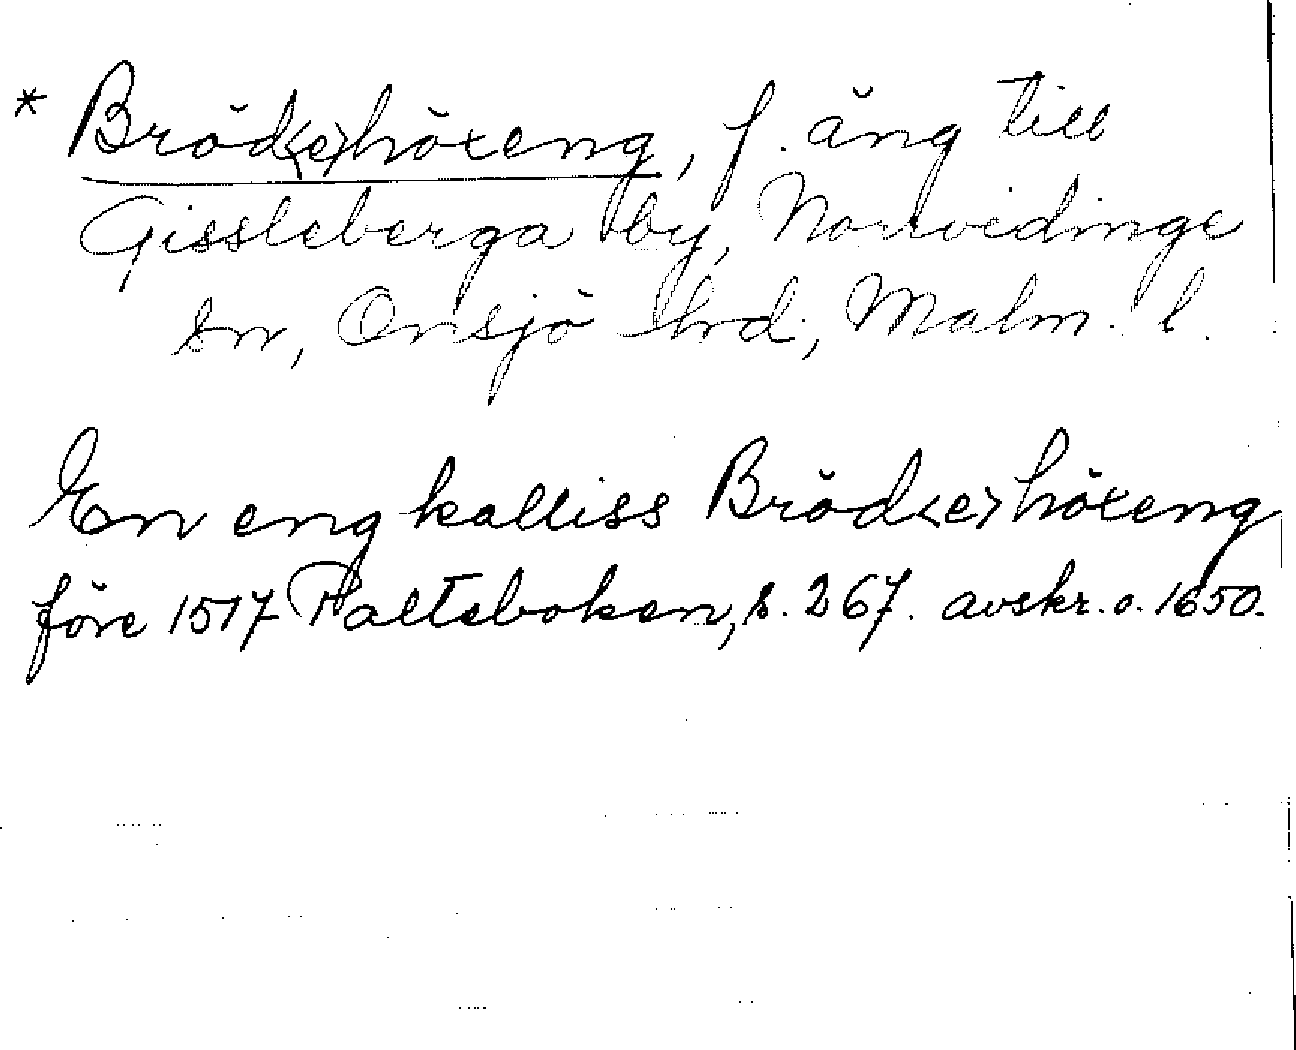 * Bröd<e>höxeng, f. äng till
Gissleberga by, Norrvidinge
sn, Onsjö hrd, Malm. l.
En eng kalliss Bröd<e>höxeng
före 1517 Palteboken, s. 267. avskr. o. 1650.